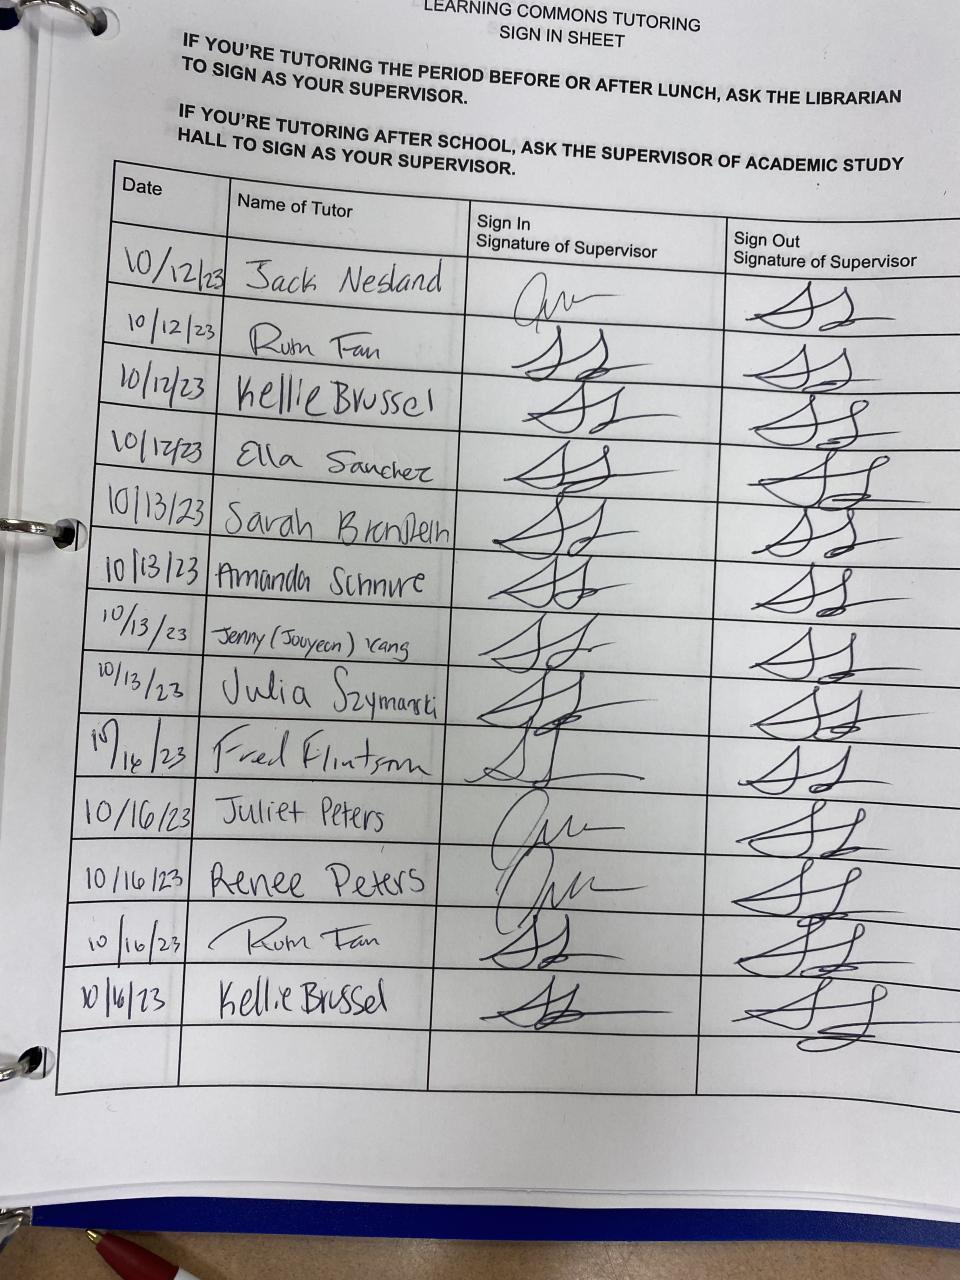 LEARNING COMMONS TUTORING
SIGN IN SHEET
IF YOU'RE TUTORING THE PERIOD BEFORE OR AFTER LUNCH, ASK THE LIBRARIAN
TO SIGN AS YOUR SUPERVISOR.
IF YOU'RE TUTORING AFTER SCHOOL, ASK THE SUPERVISOR OF ACADEMIC STUDY
HALL TO SIGN AS YOUR SUPERVISOR.
Date Name of Tutor Sign In Sign Out
Signature of Supervisor Signature of Supervisor
10/12/23 Jack Nesland
10/12/23 Fan
10/12/23 Kellie Brussel
10/12/23 Ella Sanchez
10/13/23 Sarah
10/13/23 Amanda Schnure
10/13/23 Jenny (Jouyeon) Kang
10/13/23 Julia Szymanski
10/16/23 Fred
10/16/23 Juliet Peters
10/16/23 Renee Peters
10/16/23 Fan
10/16/23 Kellie Brussel